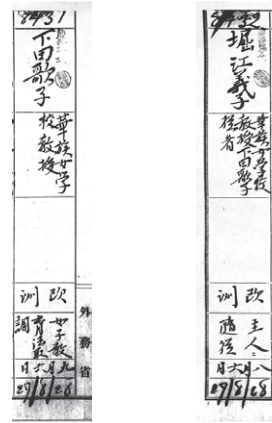 8431
下田歌子
華族女学
校教授
欧
訓
女子教
育法取
調
月六九
29/8/28
外務省
堀江義子
華族女学校
教授下田歌子
従者
欧
訓
主人ニ
随従
月六八
29/8/28